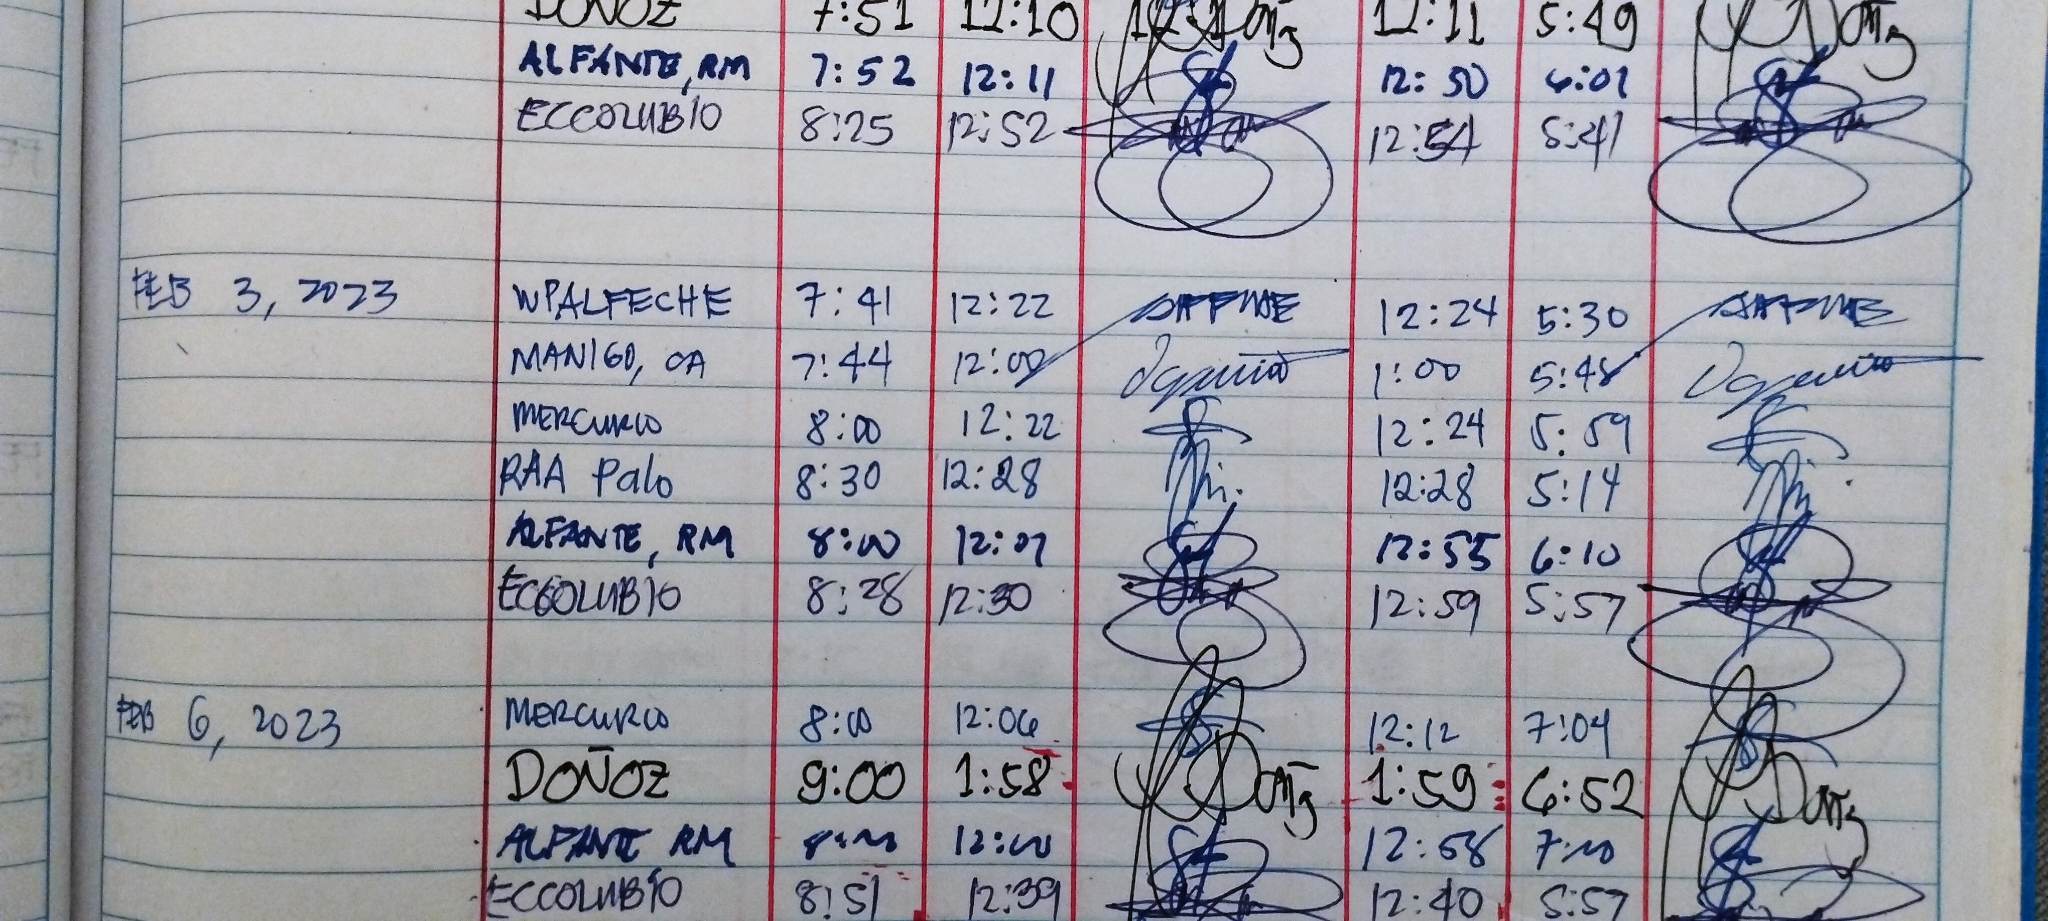 DOÑOZ 7:51 12:10 12:11 5:49
ALFANTE, RM 7:52 12:11 12:50 6:01
ECCOLUBIO 8:25 12:52 12:54 5:41
FEB 3, 2023 WPALFECHE 7:41 12:22 12:24 5:30
MANIGO, OA 7:44 12:00 1:00 5:48
MERCURIO 8:00 12:22 12:24 5:59
RAA Palo 8:30 12:28 12:28 5:14
ALFANTE, RM 8:00 12:01 12:55 6:10
ECCOLUBIO 8:28 12:30 12:59 5:57
FEB 6, 2023 MERCURIO 8:00 12:06 12:12 7:04
DOÑOZ 9:00 1:58 1:59 6:52
ALFANTE RM 12:00 12:58
ECCOLUBIO 8:51 12:39 12:40 5:57